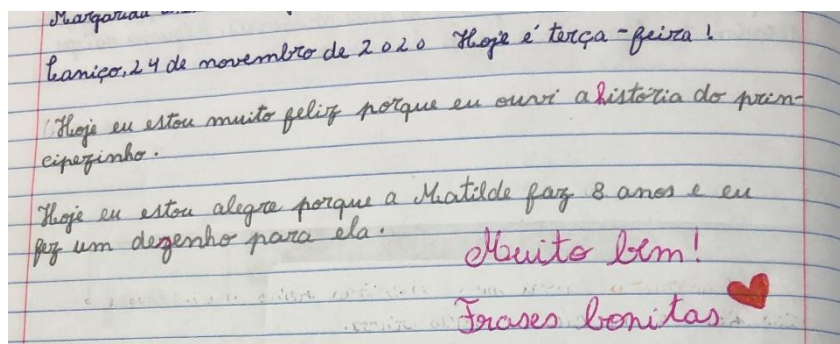 Margarida
Caniço, 24 de novembro de 2020 Hoje é terça-feira!
Hoje eu estou muito feliz porque eu ouvi a história do prin-
cipezinho.
Hoje eu estou alegre porque a Matilde faz 8 anos e eu
fez um dezenho para ela.
Muito bem!
Frases bonitas